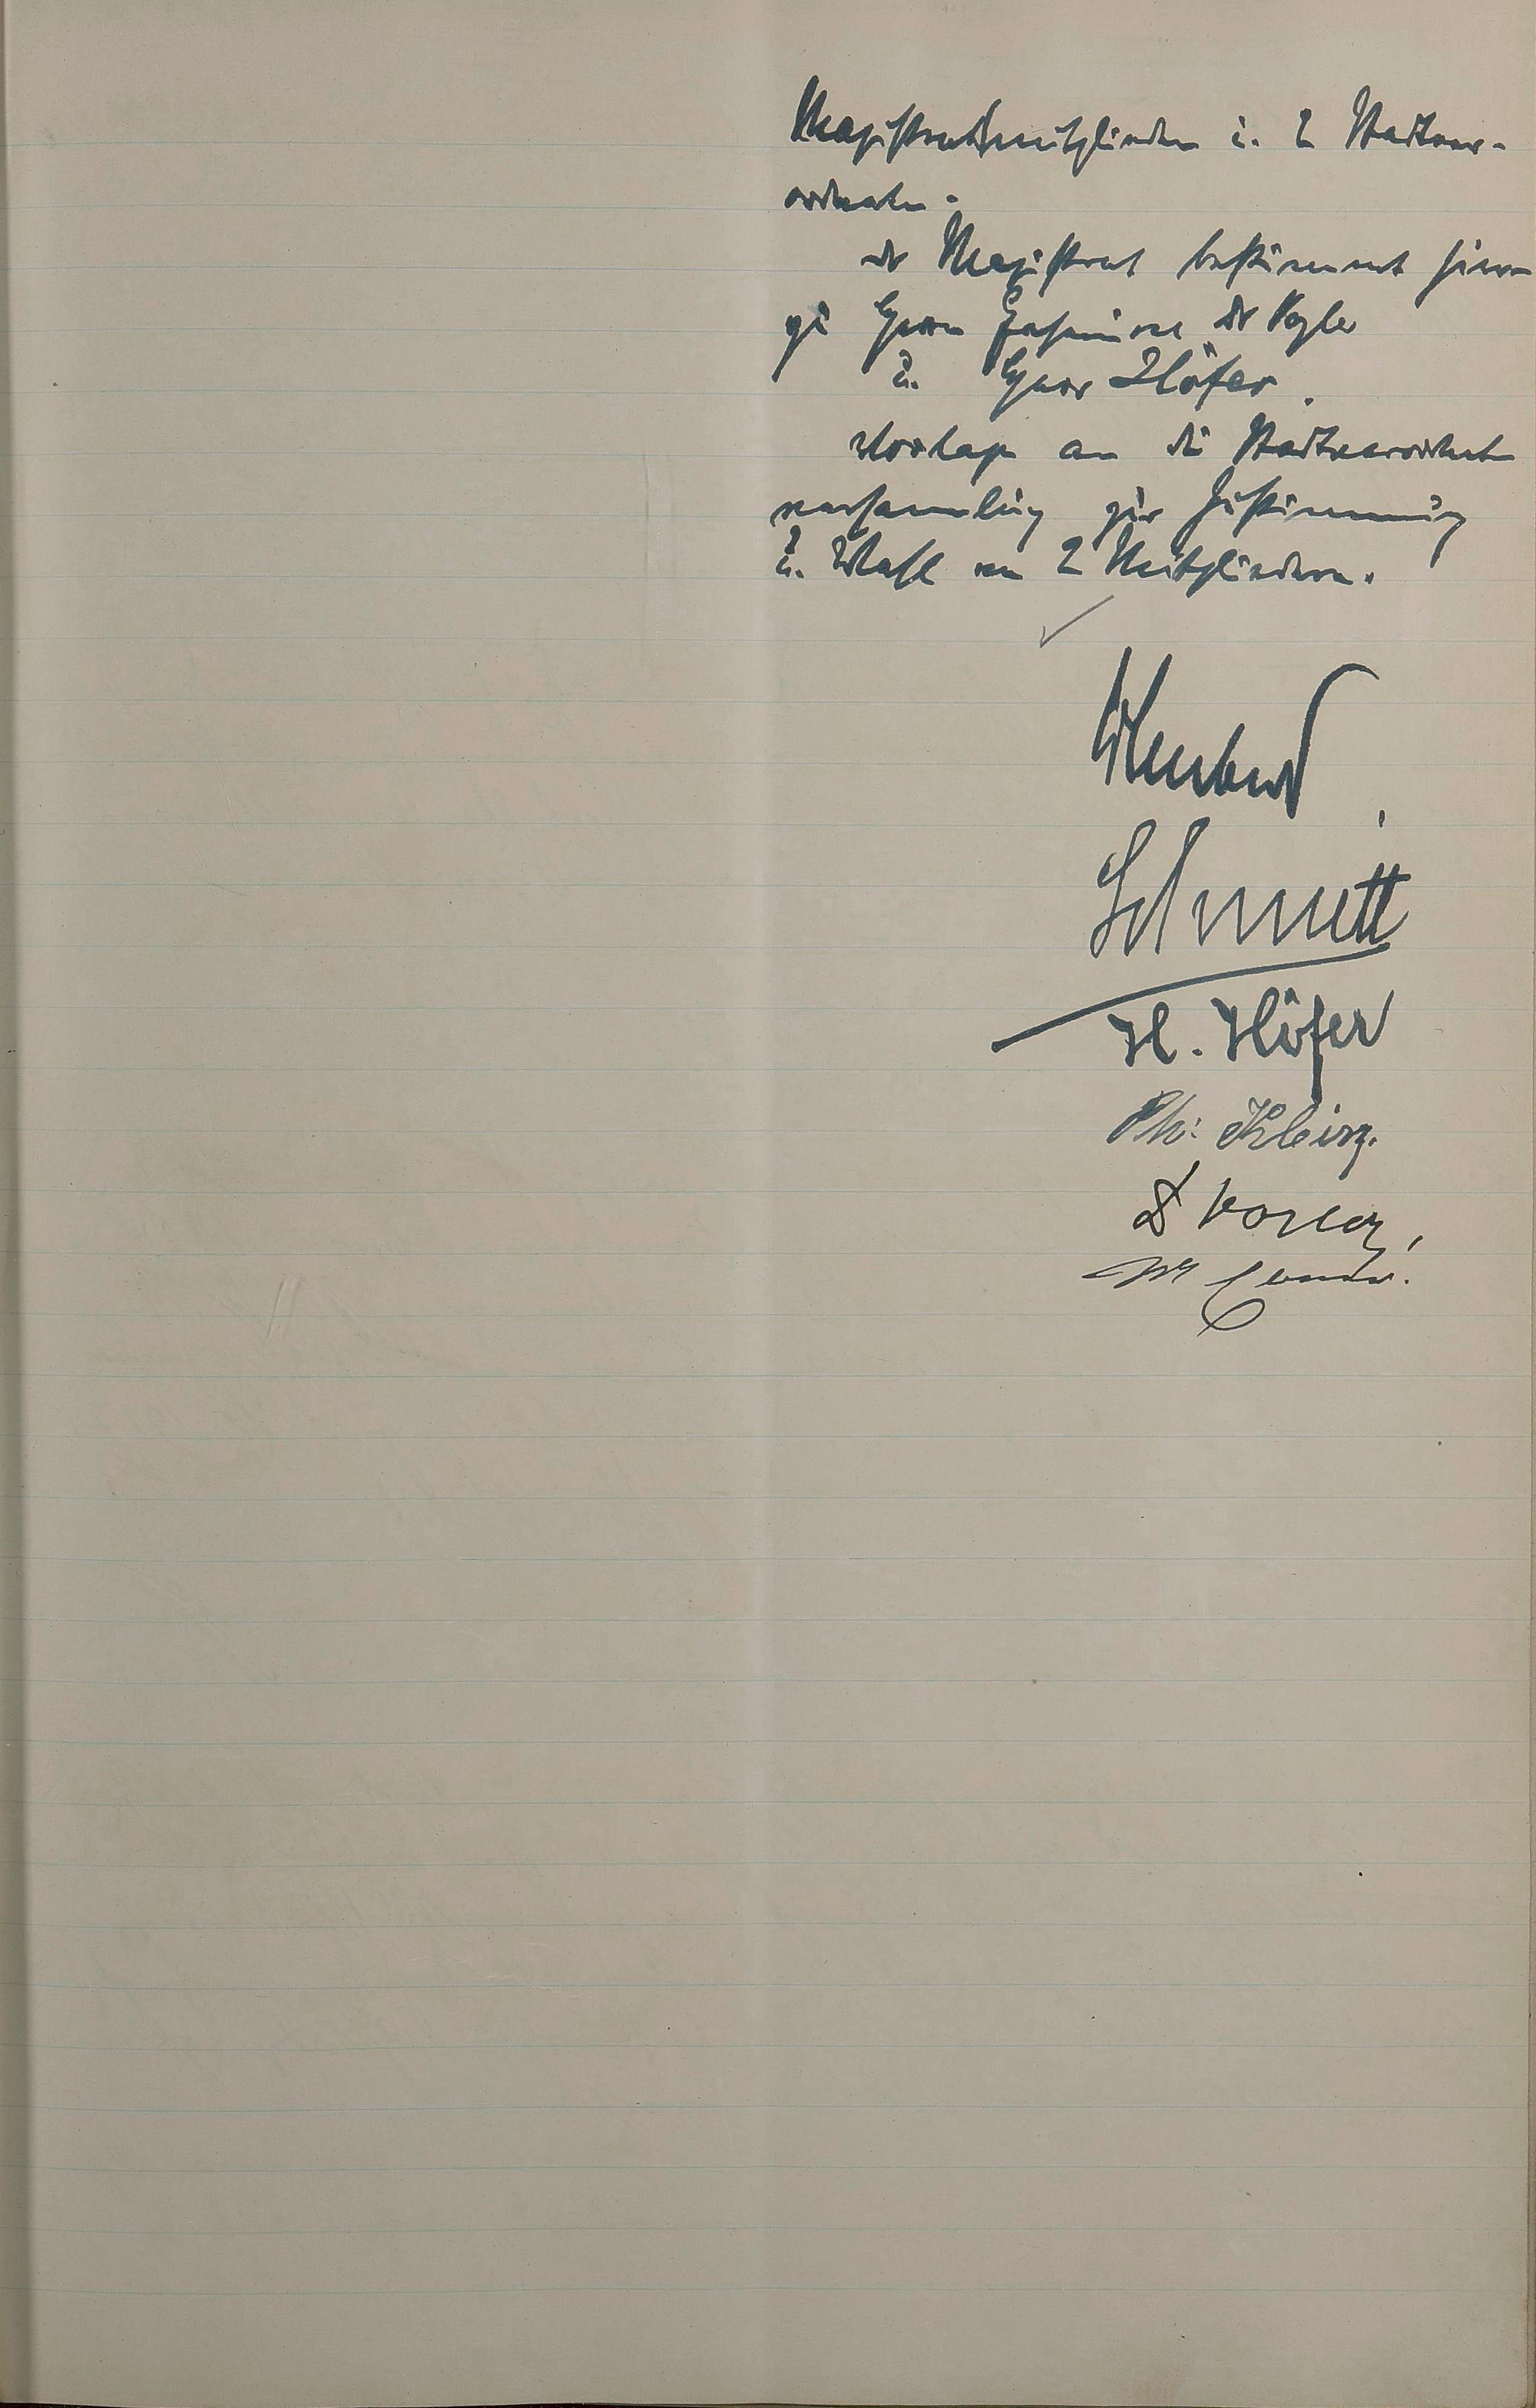 Magistratsmitglieder u. 2 Stadtver-
ordneten.
der Magistrat bestimmt hier
zu Herrn Geheimrat Dr Vogler
u. Herr Höfer.
Vorlage an die Stadtverordneten
versammlung zur Zustimmung
u. Wahl von 2 Mitgliedern.
Schmitt
H. Höfer
Ph. Kleinz.